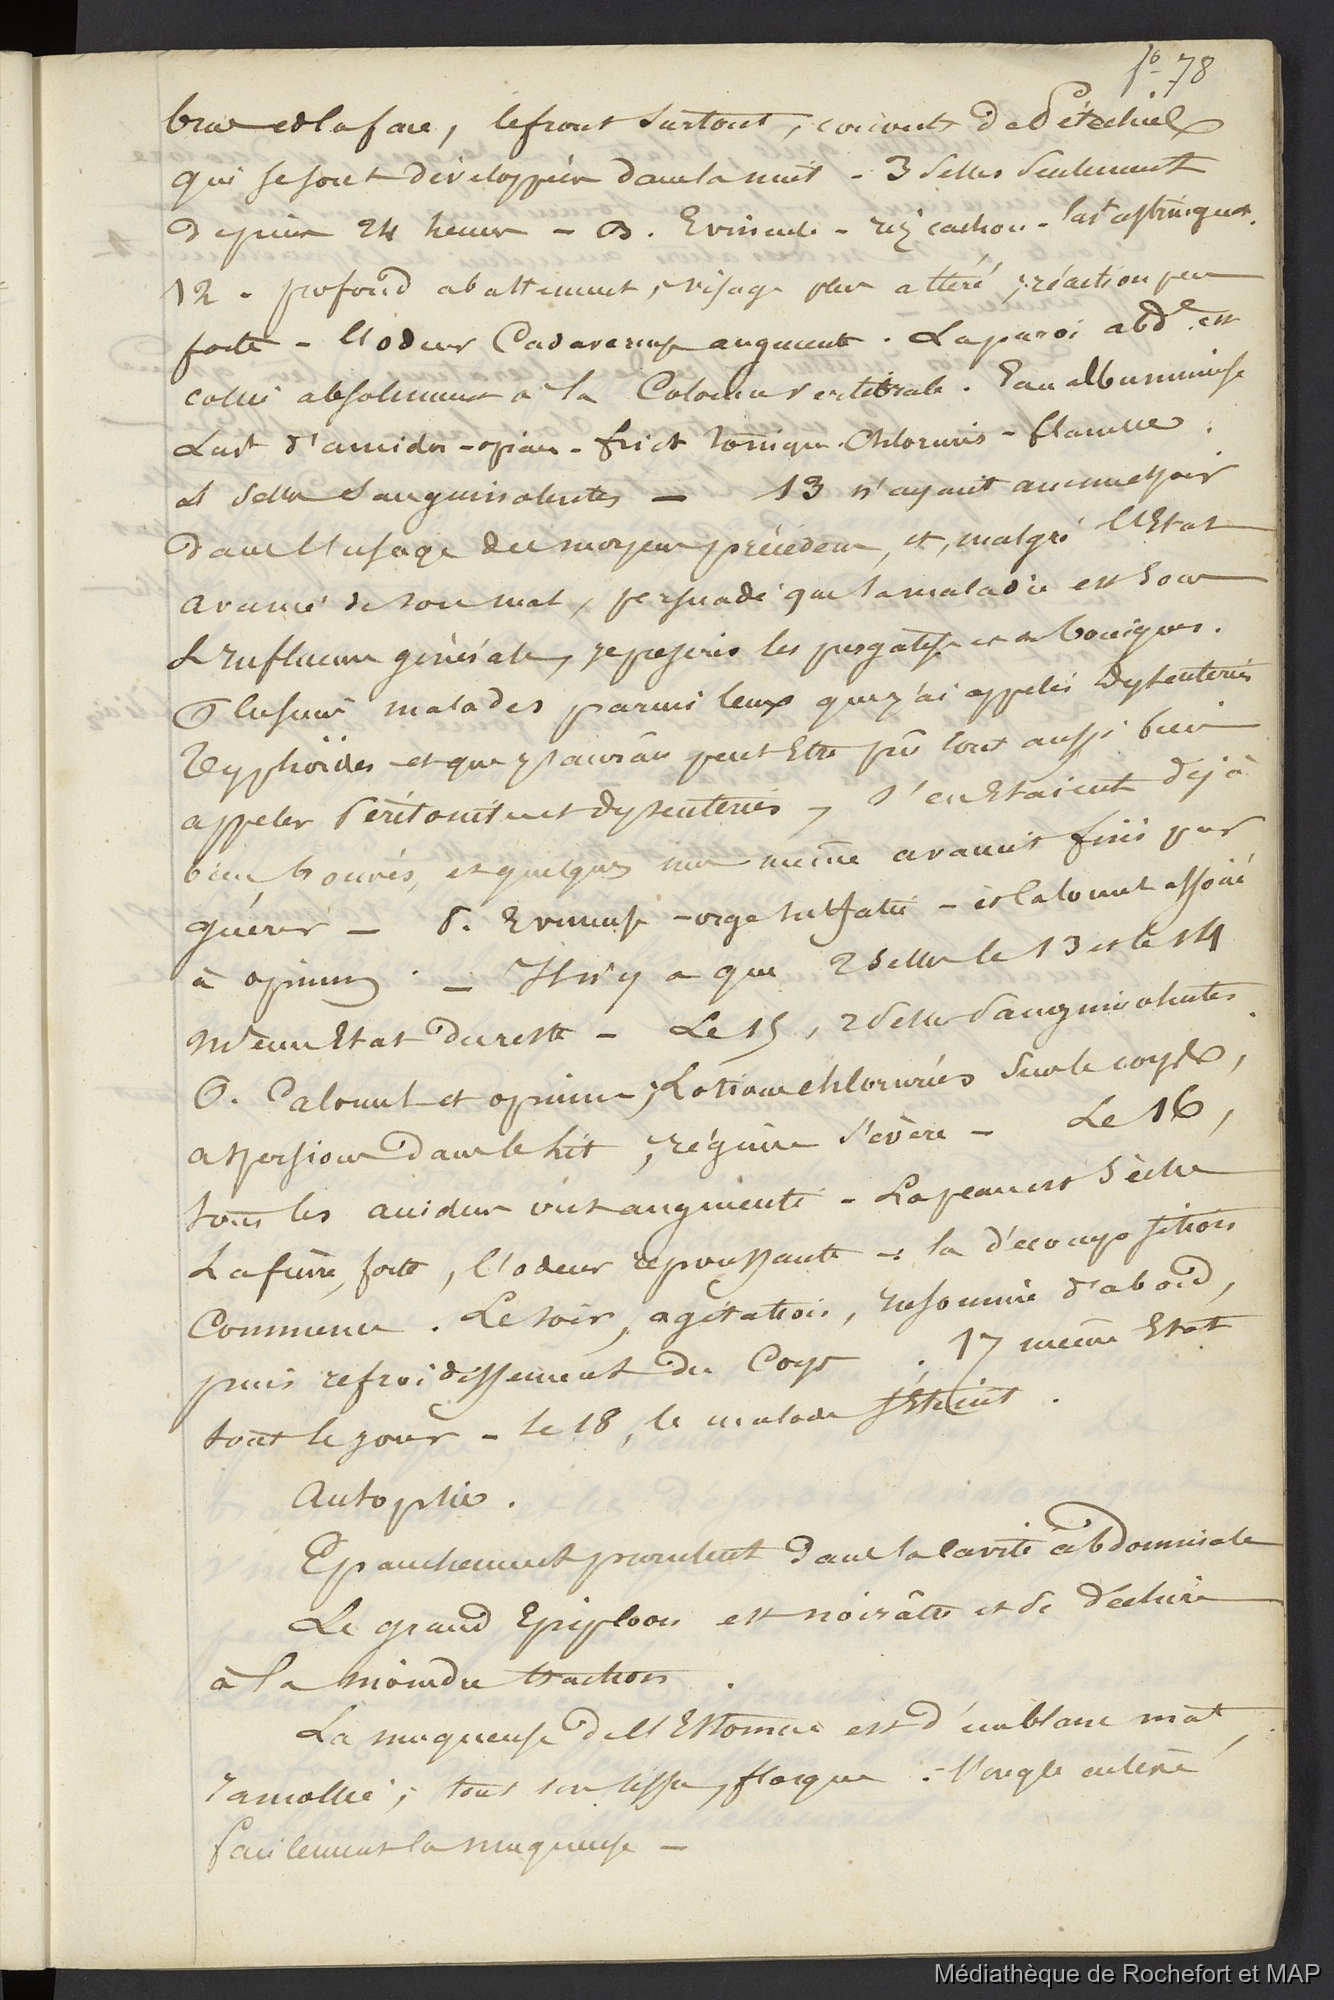 fo 78
bras et la face, le front surtout, couverts de Pétéchies
qui se sont développées dans la nuit - 3 selles seulement
depuis 24 heures - riz cachou - lavt astringent.
12 - profond abattement, visage plus altéré, réaction peu
forte - l'odeur Cadavereuse augmente. La paroi abdle est
collée absolument à la Colonne vertébrale. Eau albumineuse
Lavt d'amidon - opium - frict tonique Chlorures - flanelle.
selles Sanguinolentes - 13 n'ayant aucun espoir
dans l'usage des moyens précédens, et, malgré l'Etat
avancé de son mal, persuadé que la maladie est sous
L'influence générale, je préférai les purgatifs et
Plusieurs malades parmi ceux que j'ai appelés dysenteries
typhoïdes et que j'aurais peut Etre pû tout aussi bien
appeler Péritonites et dysenteries, s'en Etaient déjà
bien trouvés, et quelques uns même avaient fini par
guérir - P. - orge sulfatée - et Calomel associé
à opium. - Il n'y a que 2 selles le 13 et le 14
même Etat du reste - Le 15, 2 selles Sanguinolentes.
P. Calomel et opium; Lotions chlorurées sur le corps,
aspersions dans le lit; régime sévère - Le 16,
tous les accidens ont augmenté - La peau est Sèche
La fièvre forte, l'odeur repoussante -: la décomposition
Commence. Le soir, agitation, insomnie d'abord,
puis refroidissement du Corps. 17 même Etat
tout le jour - le 18, le malade s'Eteint.
Autopsie.
Epanchement purulent dans la Cavité abdominale
Le grand Epiploon est noirâtre et se déchire
à la moindre traction.
La muqueuse de l'Estomac est d'un blanc mat,
ramollie; tout son tissu, flasque: l'ongle enlève
facilement la muqueuse -
Médiathèque de Rochefort et MAP